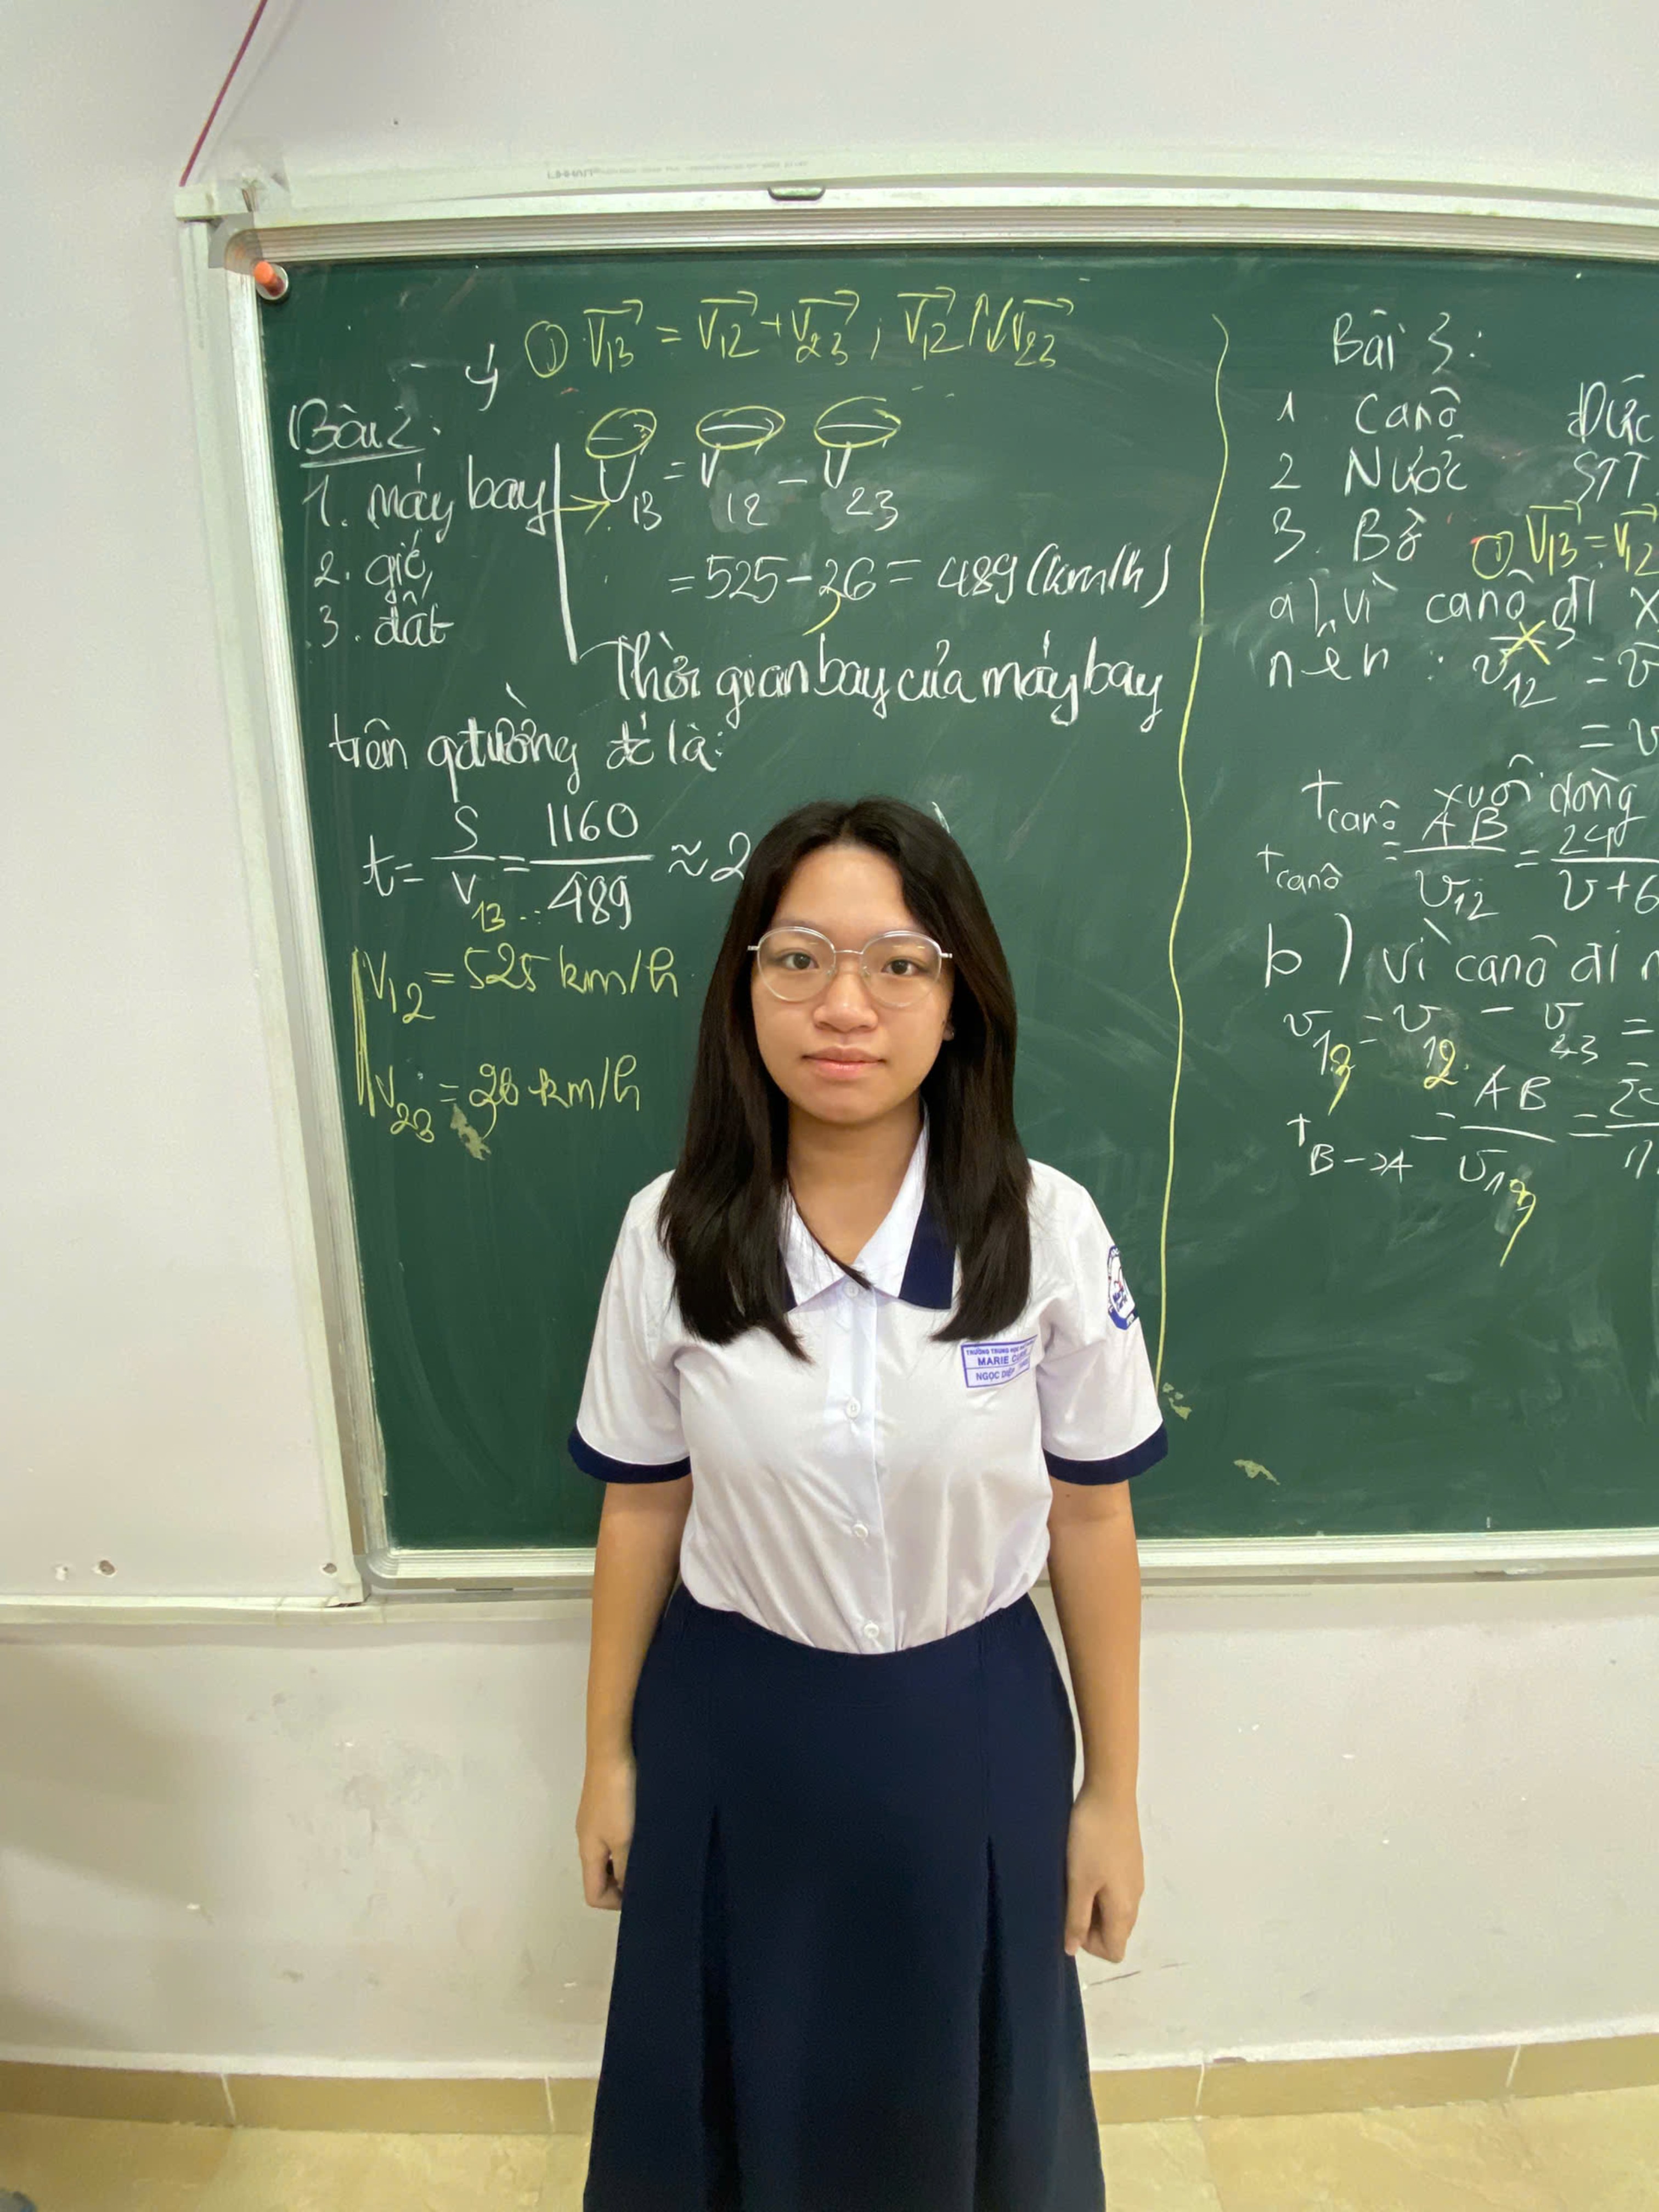 ① V13 = V12 + V23 ; V12 ↑↓ V23
Bài 2:
1. máy bay
2. gió
3. đất
V13 = V12 - V23
= 525 - 36 = 489 (km/h)
Thời gian bay của máy bay
trên qđường đó là:
t = S/V13 = 1160/489 ≈ 2
V12 = 525 km/h
V23 = 36 km/h
Bài 3:
1 Canô
2 Nước
3. Bờ
① V13 = V12
a) vì canô đi x
nên : v12 = v
= v
xuôi dòng
tcanô
tcanô = AB/v12 = 24/v+6
b) vì canô đi n
v13 = v12 - v23 =
tB→A = AB/v13 =
TRƯỜNG TRUNG HỌC
MARIE
NGỌC